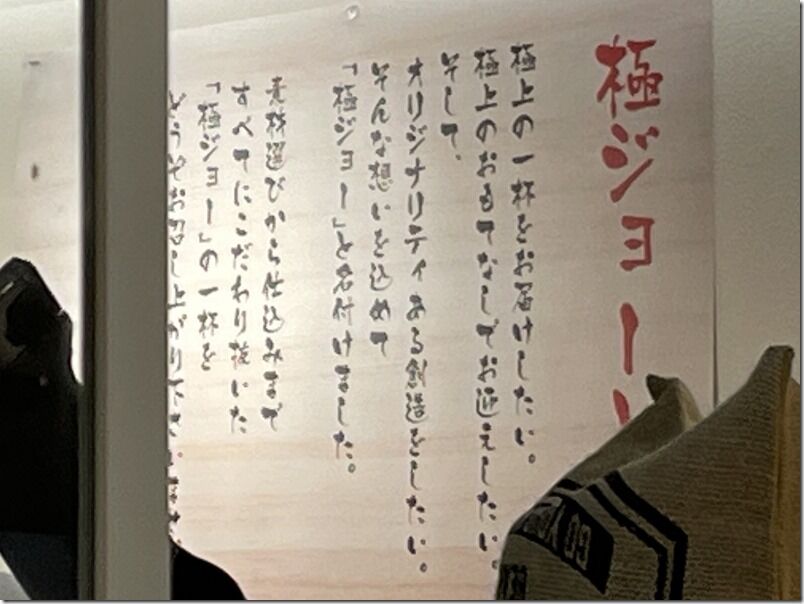 極ジョー
極上の一杯をお届けしたい。
極上のおもてなしでお迎えしたい。
そして、
オリジナリティある創造をしたい。
そんな想いを込めて
「極ジョー」と名付けました。
素材選びから仕込みまで
すべてにこだわり抜いた
「極ジョー」の一杯を
どうぞお召し上がり下さい。